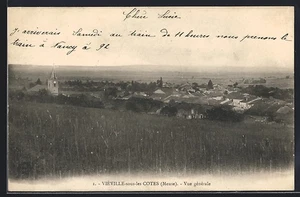 Chère Luise
J'arriverais Samedi au train de 11 heures nous prenons le
train à Nancy à 9h
1. - VIÉVILLE-sous-les COTES (Meuse). - Vue générale